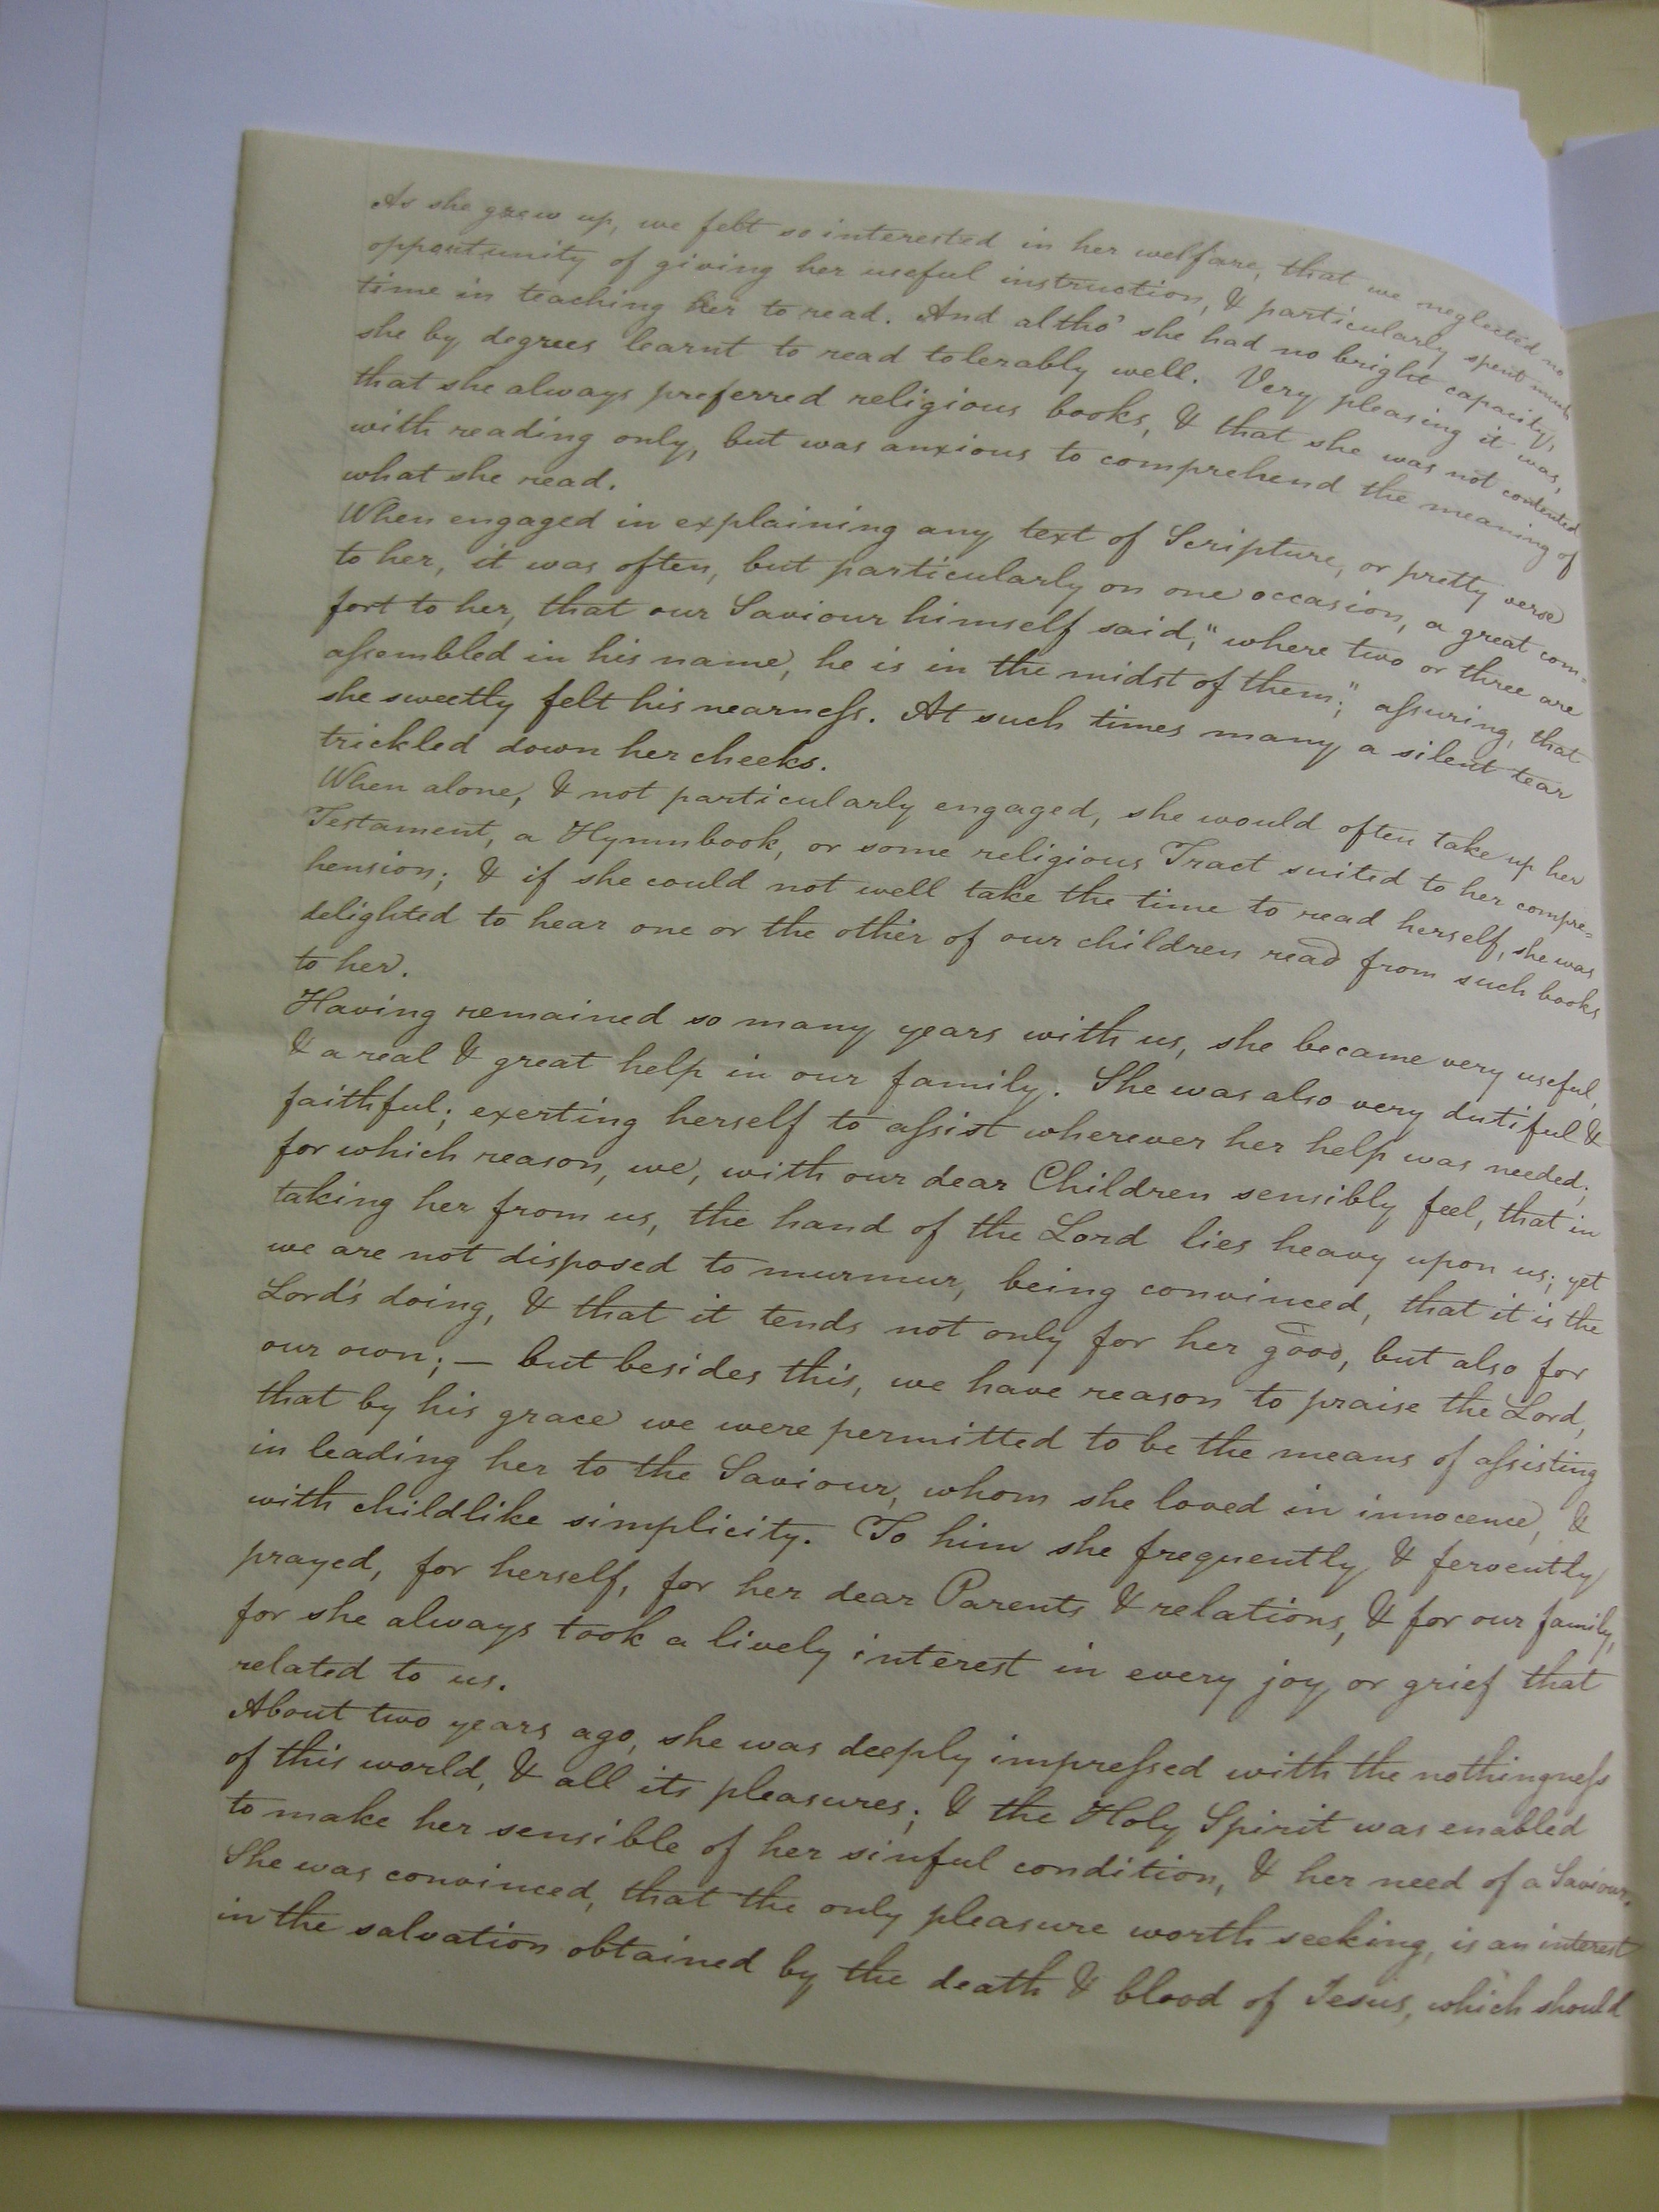 As she grew up, we felt so interested in her welfare, that we neglected no
opportunity of giving her useful instruction, & particularly spent much
time in teaching her to read. And altho' she had no bright capacity,
she by degrees learnt to read tolerably well. Very pleasing it was,
that she always preferred religious books, & that she was not contented
with reading only, but was anxious to comprehend the meaning of
what she read.
When engaged in explaining any text of Scripture, or pretty verse
to her, it was often, but particularly on one occasion, a great com-
fort to her, that our Saviour himself said, "where two or three are
aſsembled in his name, he is in the midst of them;" aſsuring, that
she sweetly felt his nearneſs. At such times many a silent tear
trickled down her cheeks.
When alone, & not particularly engaged, she would often take up her
Testament, a Hymnbook, or some religious Tract suited to her compre=
hension; & if she could not well take the time to read herself, she was
delighted to hear one or the other of our children read from such books
to her.
Having remained so many years with us, she became very useful,
& a real & great help in our family. She was also very dutiful &
faithful; exerting herself to aſsist wherever her help was needed;
for which reason, we, with our dear Children sensibly feel, that in
taking her from us, the hand of the Lord lies heavy upon us; yet
we are not disposed to murmur, being convinced, that it is the
Lord's doing, & that it tends not only for her good, but also for
our own; — but besides this, we have reason to praise the Lord,
that by his grace we were permitted to be the means of aſsisting
in leading her to the Saviour, whom she loved in innocence, &
with childlike simplicity. To him she frequently & fervently
prayed, for herself, for her dear Parents & relations, & for our family,
for she always took a lively interest in every joy or grief that
related to us.
About two years ago, she was deeply impreſsed with the nothingneſs
of this world, & all its pleasures; & the Holy Spirit was enabled
to make her sensible of her sinful condition, & her need of a Saviour.
She was convinced, that the only pleasure worth seeking, is an interest
in the salvation obtained by the death & blood of Jesus, which should